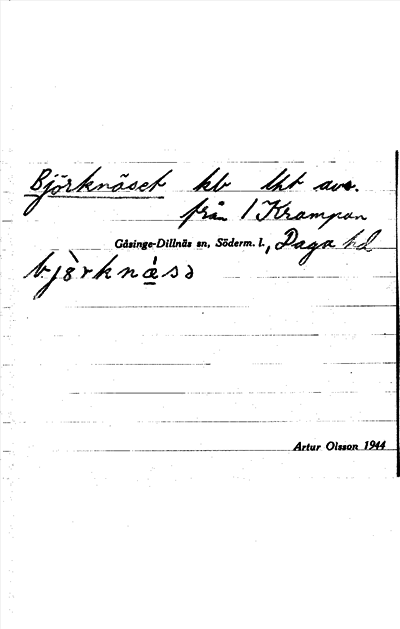 Björknäset kb lht avs.
från 1 Krampan
Gåsinge-Dillnäs sn, Söderm. l., Daga hd
Artur Olsson 1944